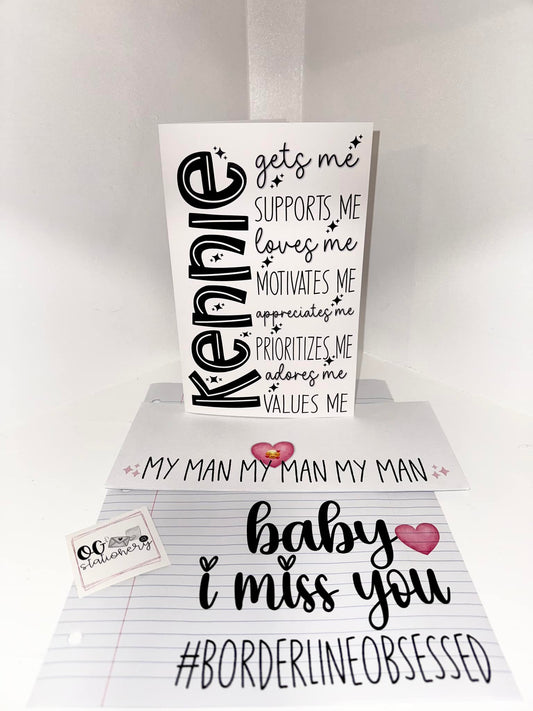 Kennie
gets me
SUPPORTS ME
loves me
MOTIVATES ME
appreciates me
PRIORITIZES ME
adores me
VALUES ME
MY MAN MY MAN MY MAN
OG
stationery
baby
i miss you
#BORDERLINEOBSESSED